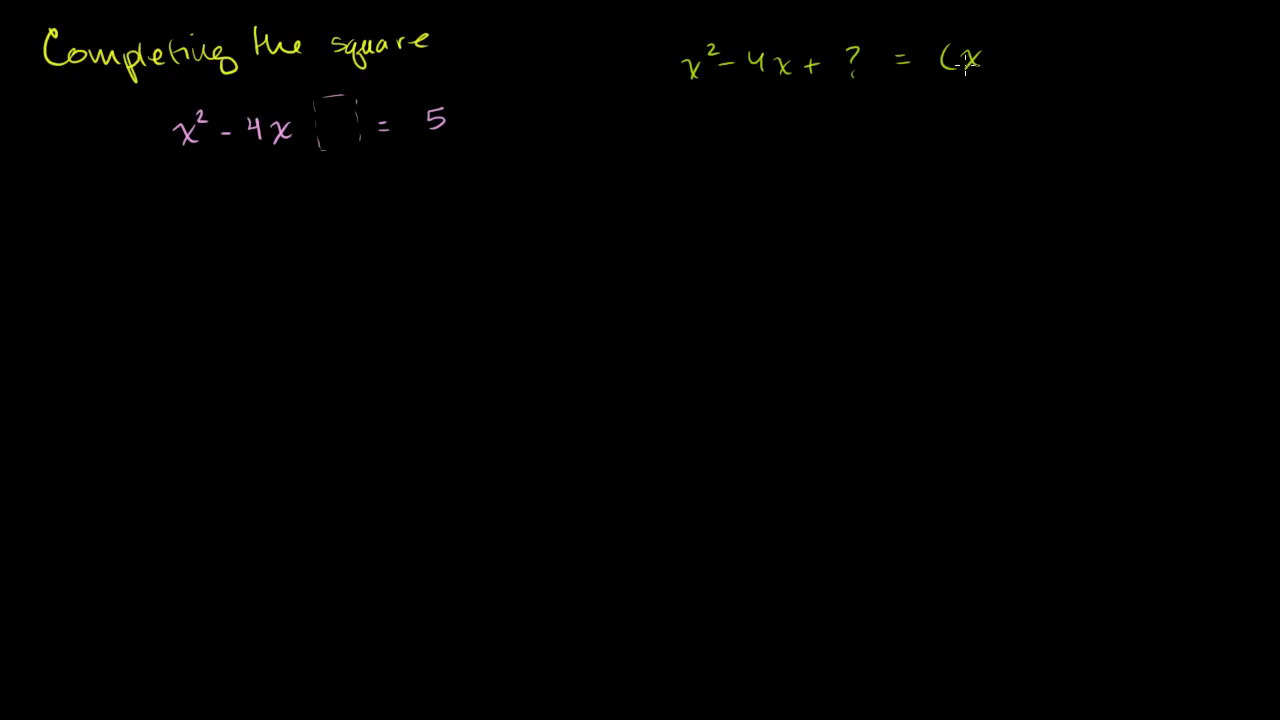 Completing the square
x² - 4x + ? = (x
x² - 4x = 5